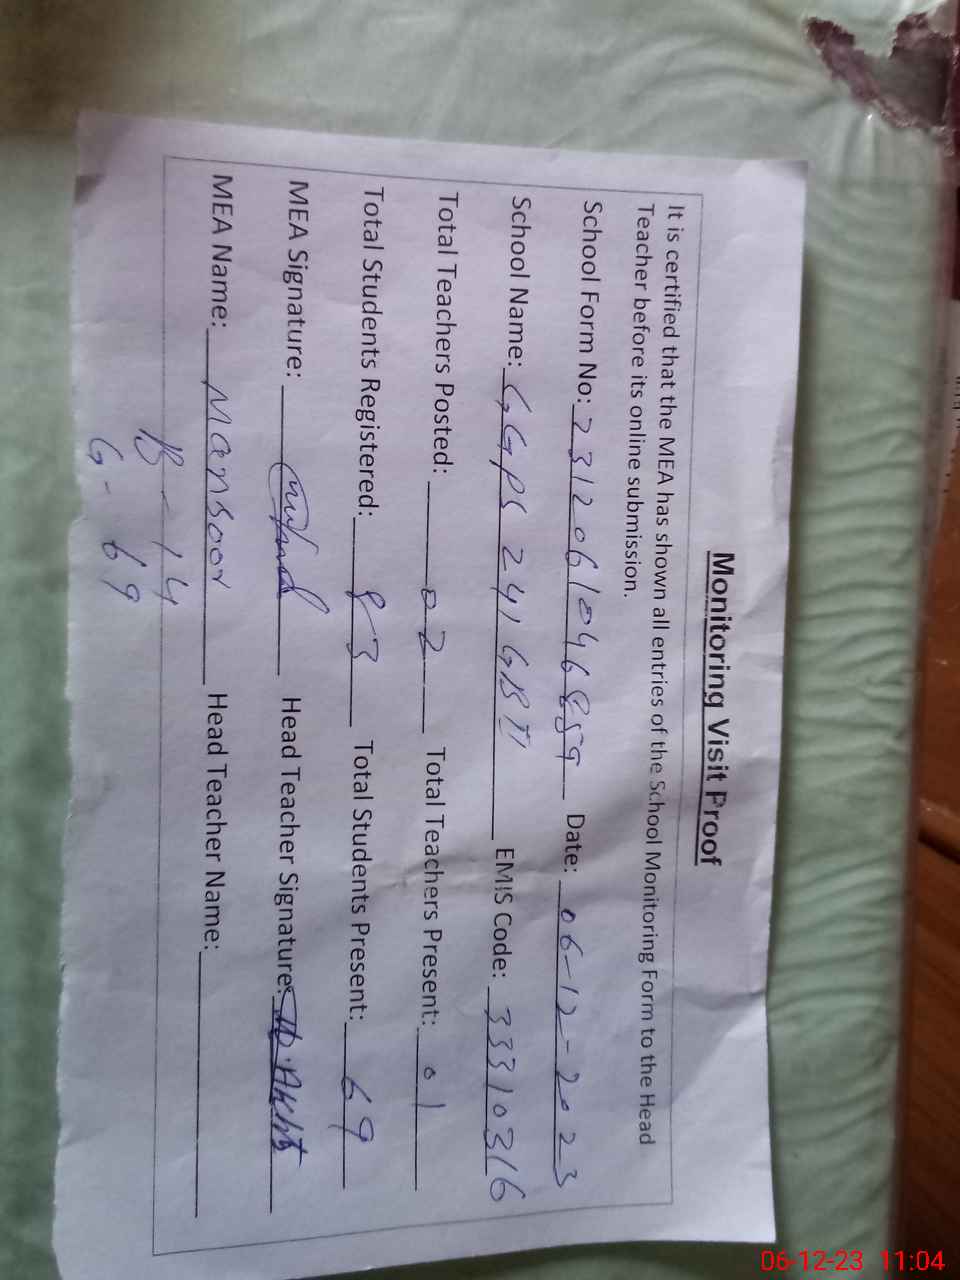 Monitoring Visit Proof
It is certified that the MEA has shown all entries of the School Monitoring Form to the Head
Teacher before its online submission.
School Form No: 231206/046859 Date: 06-12-2023
School Name: GGPS 241 GB II EMIS Code: 33310316
Total Teachers Posted: 02 Total Teachers Present: 01
Total Students Registered: 83 Total Students Present: 69
MEA Signature: Head Teacher Signature:
MEA Name: Mansoor Head Teacher Name:
B - 14
G - 69
06-12-23 11:04